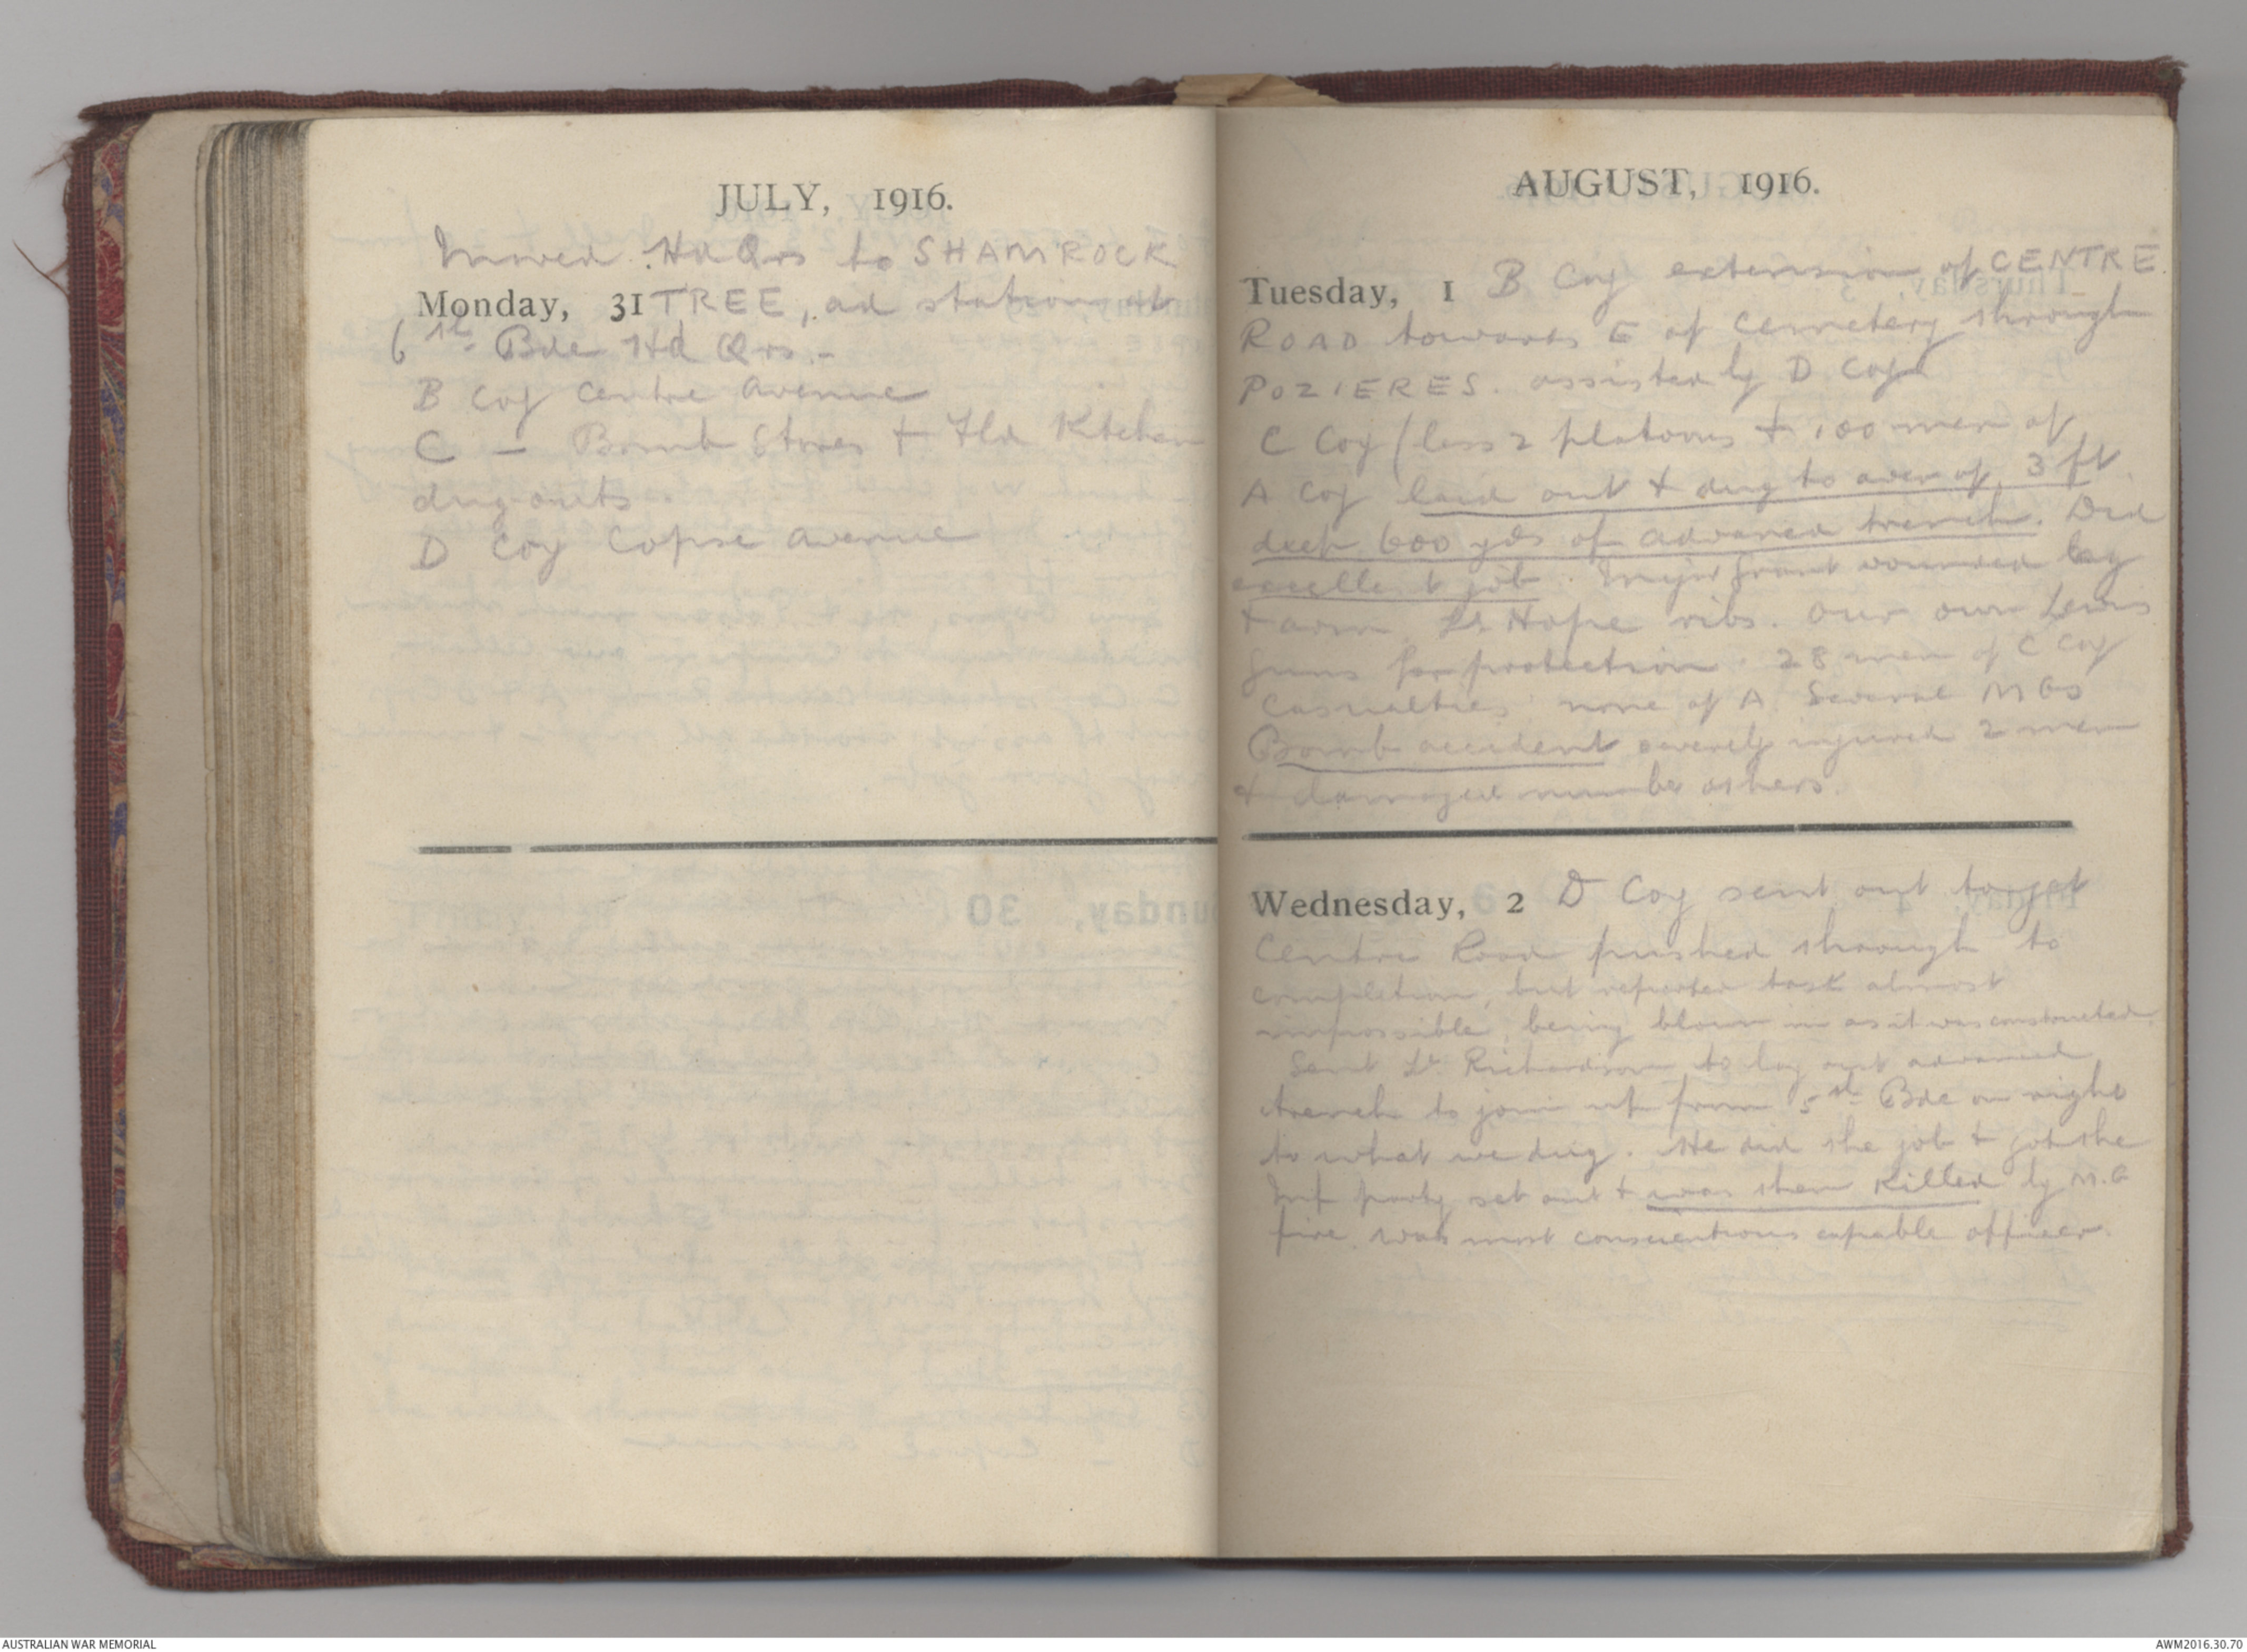 JULY, 1916.
Moved Hd Qrs to SHAMROCK
Monday, 31 TREE, ad station at
6th Bde Hd Qrs.-
B Coy Centre Avenue
C - Bomb Stores + Fld Kitchen
dug-outs
D Coy Copse Avenue
AUGUST, 1916.
Tuesday, 1 B Coy extension of CENTRE
ROAD towards E of Cemetery through
POZIERES. assisted by D Coy
C Coy (less 2 platoons + 100 men of
A Coy laid out + dug to aver of 3 ft
deep 600 yds of advanced trench. Did
excellent job. Major Grant wounded leg
+ arm Lt Hope ribs. Our own Lewis
guns for protection. 28 men of C Coy
Casualties none of A. Several MGs
Bomb accident severely injured 2 men
+ damaged number others.
Wednesday, 2 D Coy sent out to get
Centre Road pushed through to
completion, but reported task almost
impossible, being blown in as it was constructed.
Sent Lt. Richardson to lay out advanced
trench to join up from 5th Bde on right
to what we dug. He did the job + got the
Inf party set out + was then killed by M.G
fire. was most conscientious capable officer.
AUSTRALIAN WAR MEMORIAL
AWM2016.30.70